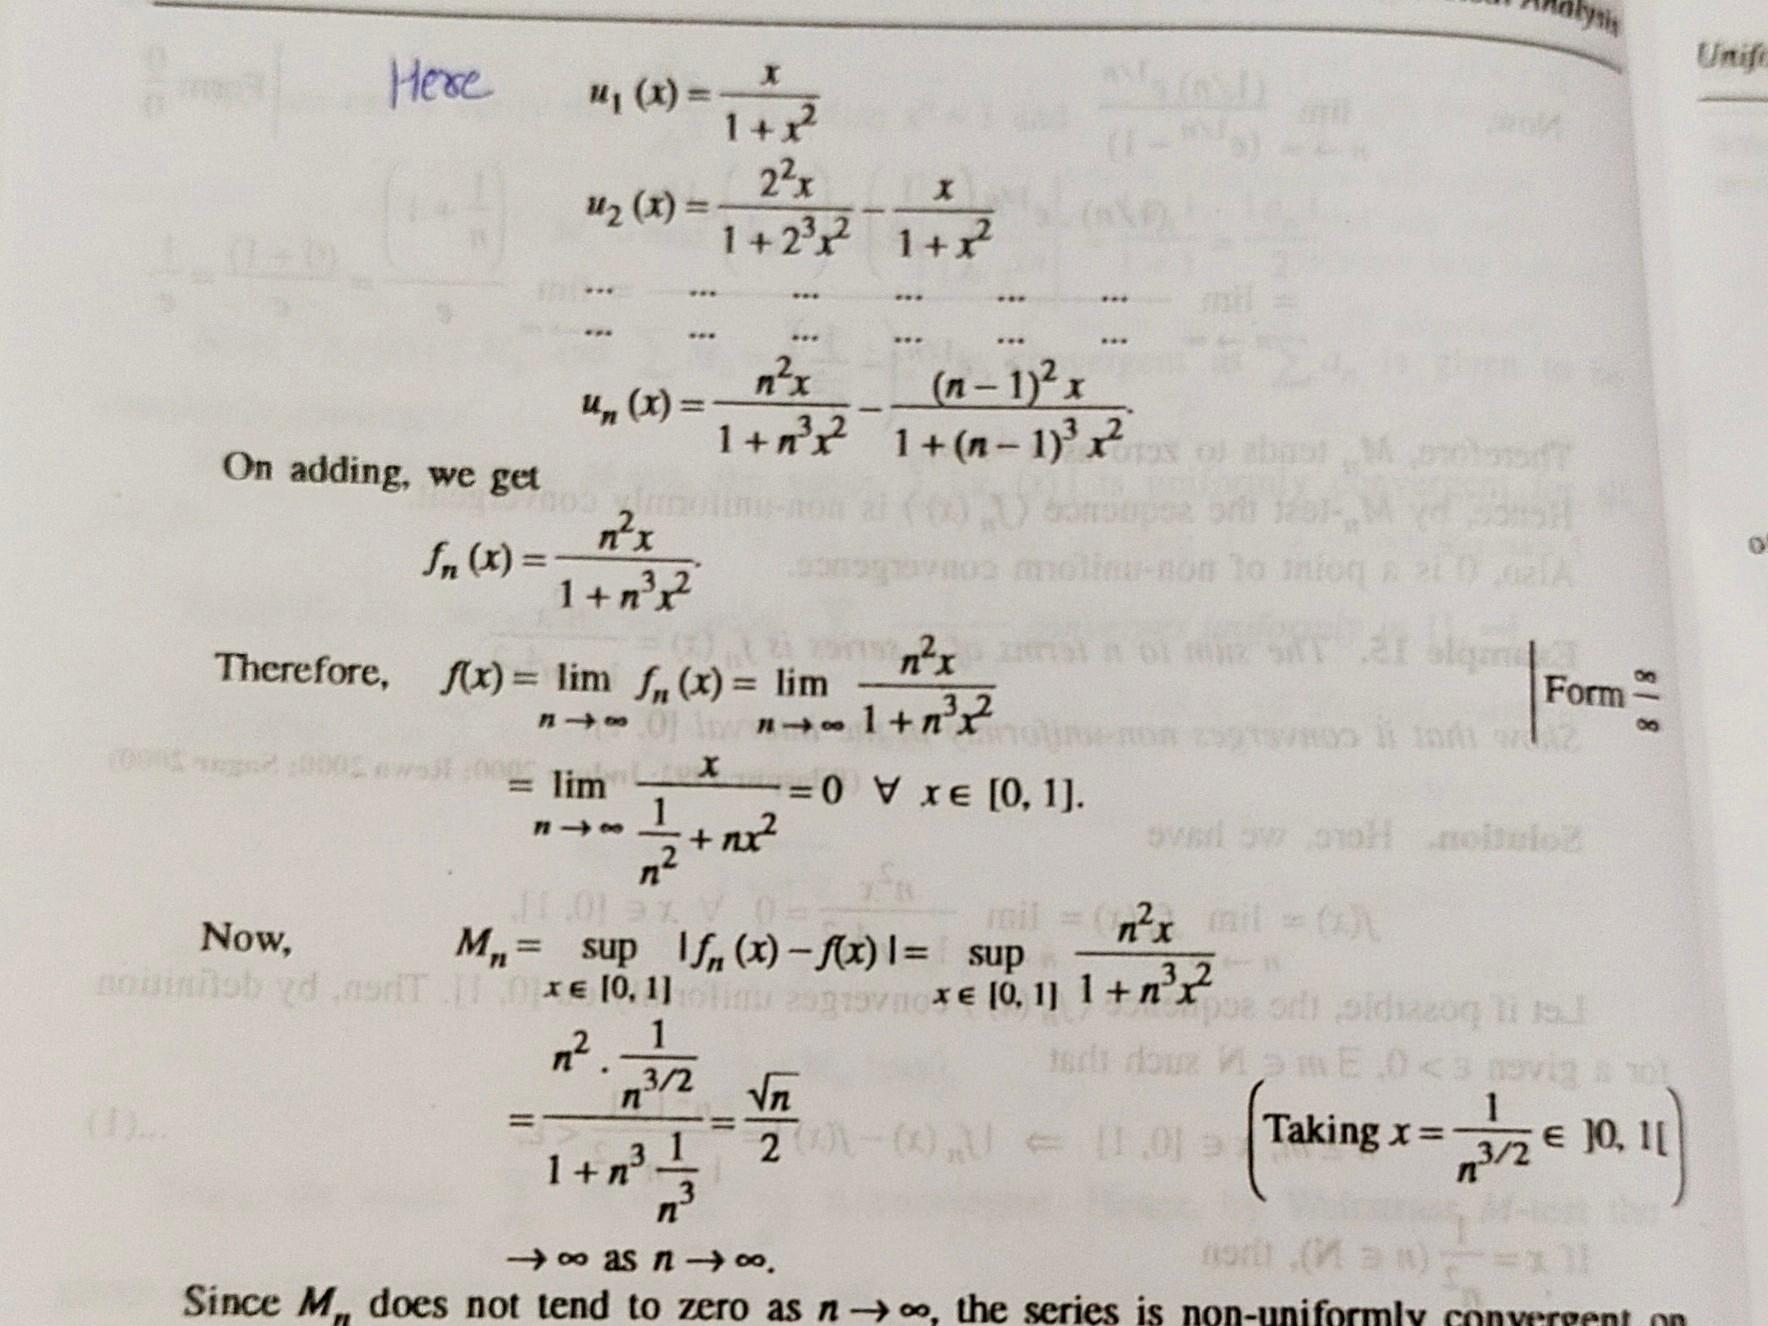 Analysis
Here u₁ (x) = x / (1 + x²)
u₂ (x) = 2²x / (1 + 2³x²) − x / (1 + x²)
... ... ... ... ... ...
... ... ... ... ... ...
uₙ (x) = n²x / (1 + n³x²) − (n − 1)² x / (1 + (n − 1)³ x²).
On adding, we get
fₙ (x) = n²x / (1 + n³x²).
Therefore, f(x) = lim n → ∞ fₙ (x) = lim n → ∞ n²x / (1 + n³x²) | Form ∞/∞
= lim n → ∞ x / (1/n² + nx²) = 0 ∀ x ∈ [0, 1].
Now, Mₙ = sup x ∈ [0, 1] | fₙ (x) − f(x) | = sup x ∈ [0, 1] n²x / (1 + n³x²)
= (n² . 1/n^{3/2}) / (1 + n³ 1/n³) = √n / 2 (Taking x = 1/n^{3/2} ∈ ]0, 1[)
→ ∞ as n → ∞.
Since Mₙ does not tend to zero as n → ∞, the series is non-uniformly convergent on